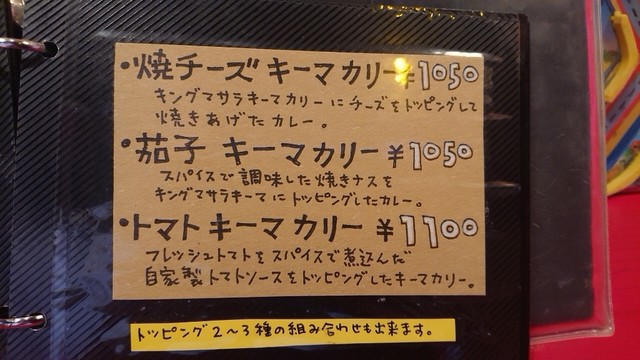 ・焼チーズ キーマカリー ¥1050
キングマサラキーマカリーにチーズをトッピングして
焼きあげたカレー。
・茄子 キーマカリー ¥1050
スパイスで調味した焼きナスを
キングマサラキーマにトッピングしたカレー。
・トマトキーマカリー ¥1100
フレッシュトマトをスパイスで煮込んだ
自家製トマトソースをトッピングしたキーマカリー。
トッピング2〜3種の組み合わせも出来ます。